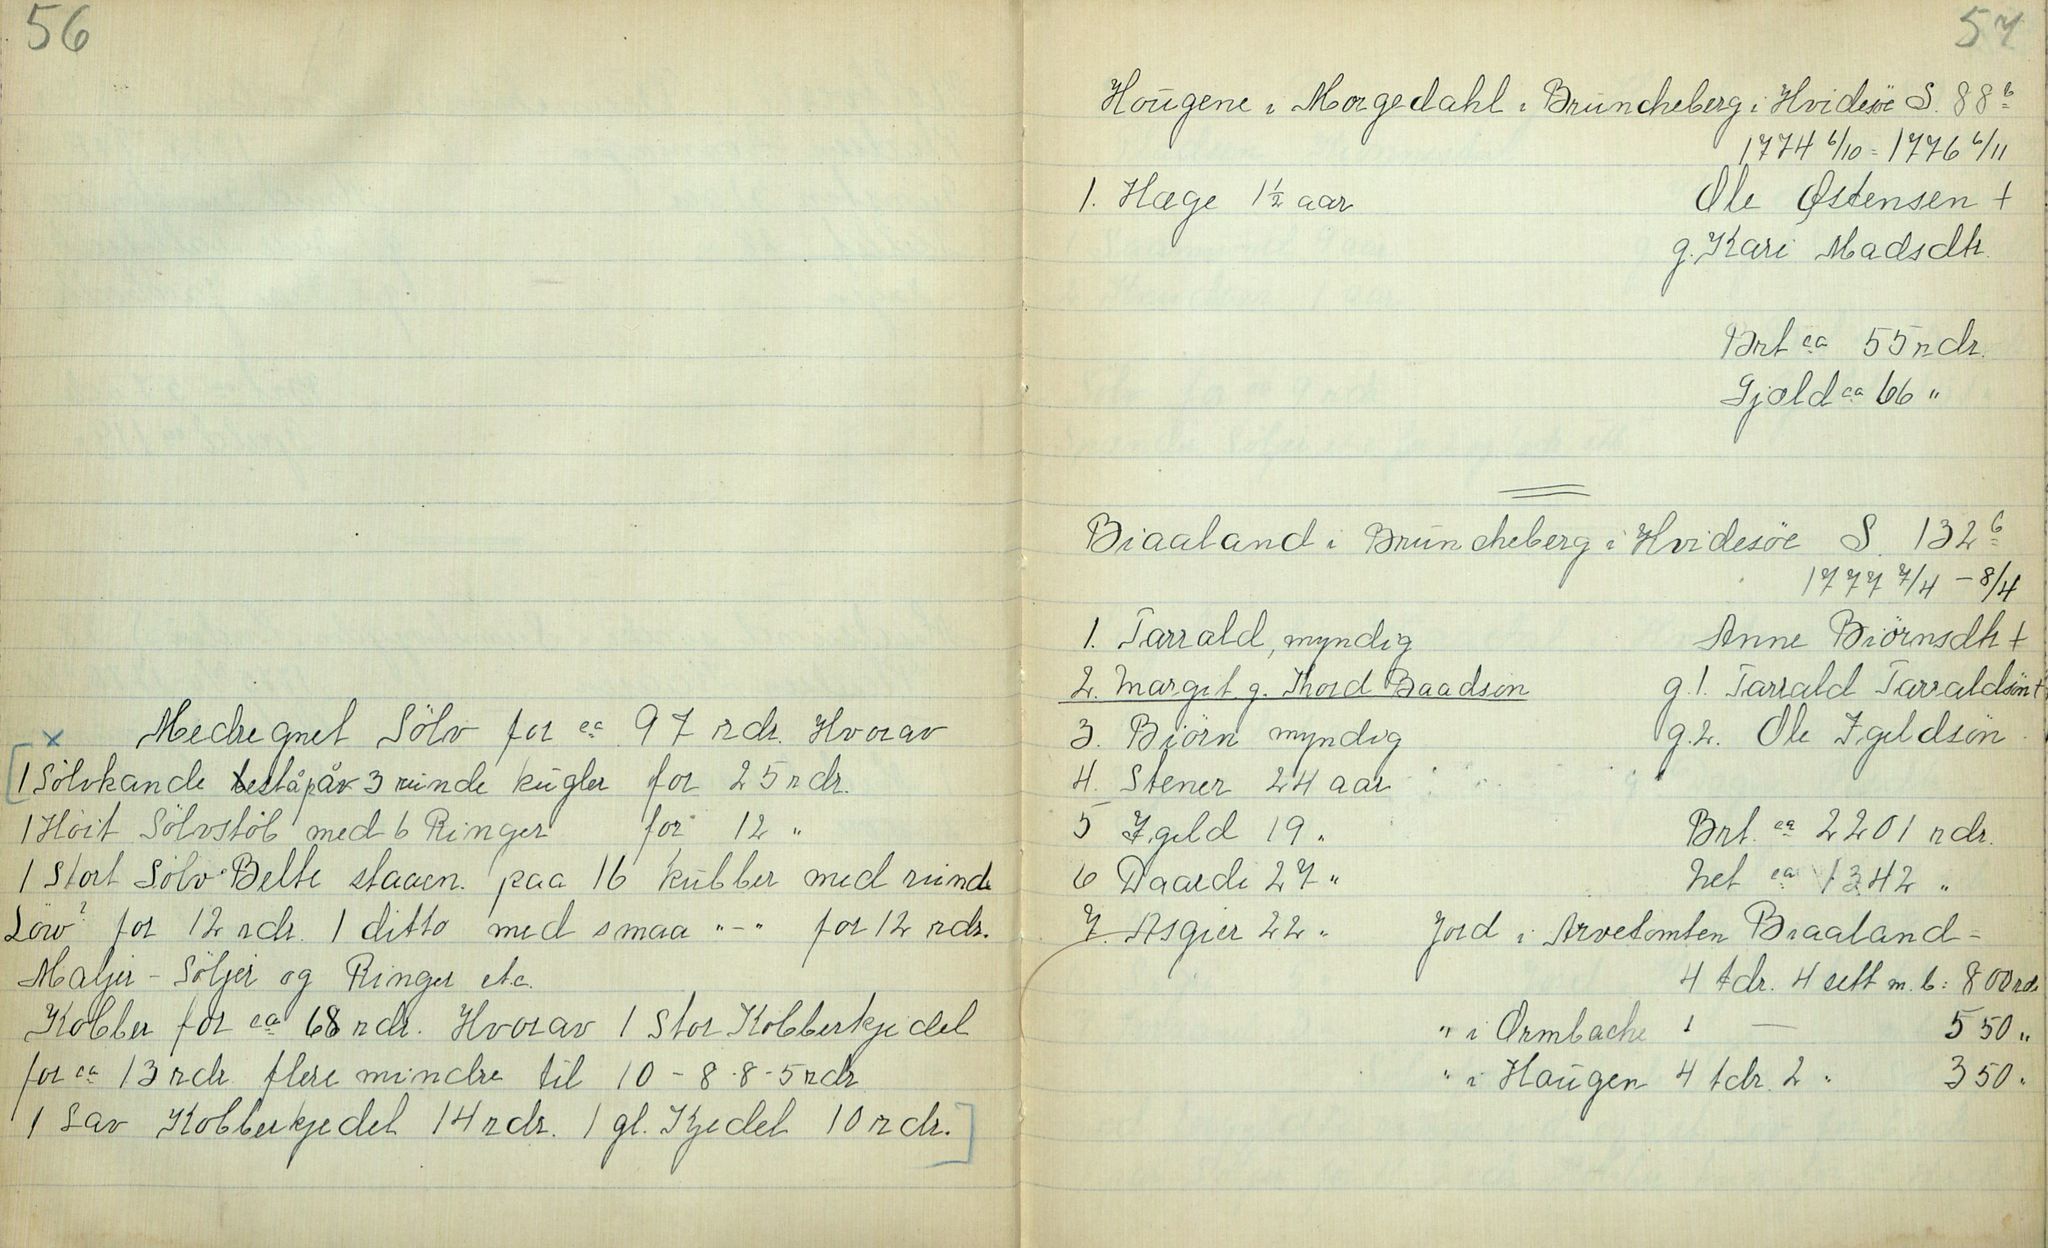 56
Medregnet Sölv for ca 97 rdr. Hvorav
x
1 Sölvkande bestå på 3 runde kugler for 25 rdr.
1 Höit Sölvstöb med 6 Ringer for 12 "
1 Stort Sölv Belte staaen. paa 16 kubber med runde
Löw? for 12 rdr. 1 ditto med smaa "-" for 12 rdr.
Maljer - Söljer og Ringer etc.
Kobber for ca 68 rdr. Hvorav 1 Stor Kobberkjedel
for ca 13 rdr flere mindre til 10 - 8 - 8 - 5 rdr
1 Lav Kobberkjedel 14 rdr. 1 gl. Kjedel 10 rdr.
57
Hoŭgene i Morgedahl i Brŭncheberg i Hvidesöe S. 88 b
1774 6/10 = 1776 6/11
1. Hæge 1½ aar Ole Østensen +
g. Kari Madsdtr.
Brt ca 55 rdr.
Gjæld ca 66 "
Biaaland i Brŭncheberg i Hvidesöe S. 132 b
1777 7/4 - 8/4
1. Tarrald, myndig Anne Biörnsdtr +
2. Margit g. Thord Baadsön g. 1. Tarrald Tarraldsön +
3. Biörn myndig g. 2. Ole Igeldsön
4. Stener 24 aar
5 Igeld 19 " Brt. ca 2201 rdr.
6 Daardi 27 " Net ca 1342 "
7. Asgier 22 " Jord i Arvetomten Biaaland =
4 tdr. 4 sett m. b: 800 rdr
" i Ormbache 1 — 550 "
" i Haŭgen 4 tdr. 2 " 350 "